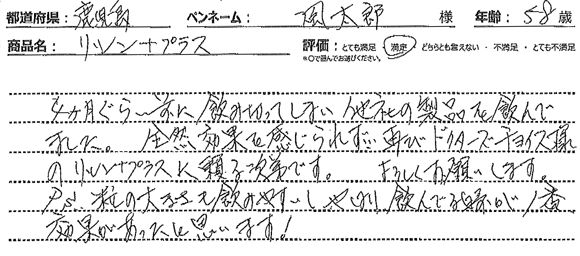 都道府県： 鹿児島 ペンネーム： 風太郎 様 年齢： 58 歳
商品名： リソン＋プラス 評価： とても満足 ・ 満足 ・ どちらとも言えない ・ 不満足 ・ とても不満足
※○で囲んでお選びください。
4ヶ月ぐらい前に飲み切ってしまい他社の製品を飲んで
ました。 全然効果を感じられず… 再びドクターズチョイス様
のリソン＋プラスに頼る次第です。 よろしくお願いします。
P.S. 粒の大きさも飲みやすいしやはり飲んで 1番
効果があったと思います！